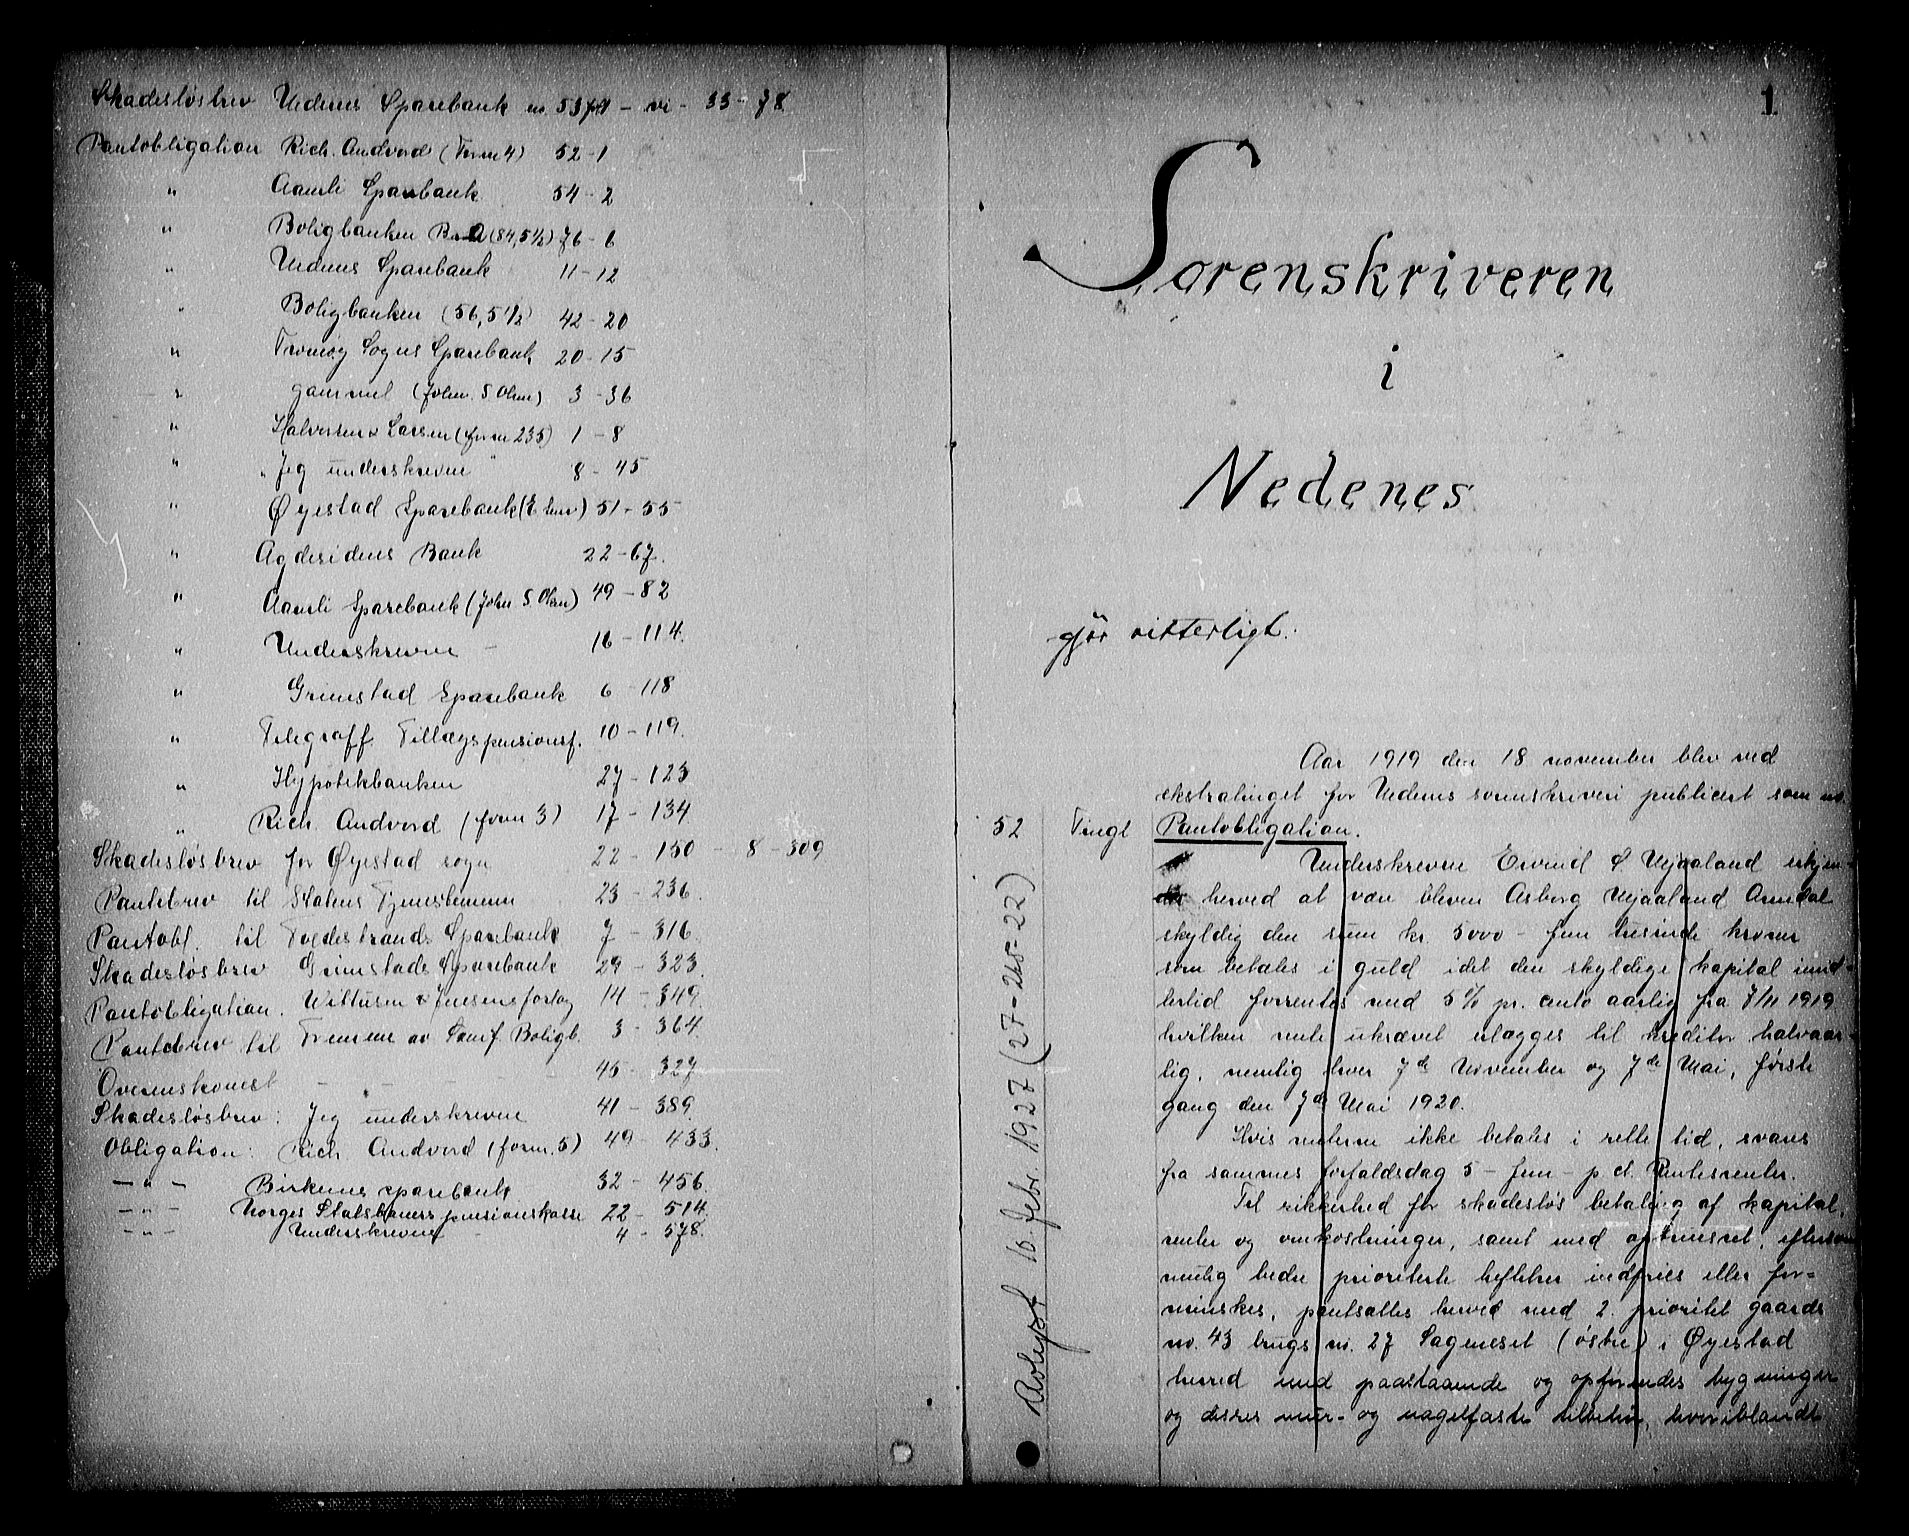 Skadesløsbrev Nedenes Sparebank no. 53 - vi - 33 - 78
Pantobligation Rich. Andvord (Form 4) 52 - 1
" Aamli Sparebank 54 - 2
" Boligbanken (84, 5½) 76 - 6
" Nedenes Sparebank 11 - 12
" Boligbanken (56, 5½) 42 - 20
" Tromøy Sogns Sparebank 20 - 15
" gammel (John. S. Olsen) 3 - 36
" Halvorsen & Larsen (form 235) 1 - 8
" "Jeg underskrevne" 8 - 45
" Øyestad Sparebank 51 - 55
" Agdesidens Bank 22 - 67.
" Aamli Sparebank (John. S. Olsen) 49 - 82
" Underskrevne - 16 - 114.
" Grimstad Sparebank 6 - 118
" Telegraff. Tillægspensionsf. 10 - 119.
" Hypotekbanken 27 - 123
" Rich. Andvord (form 3) 17 - 134
Skadesløsbrev for Øyestad sogn 22 - 150 - 8 - 309
Pantebrev til Statens Tjenestemenn 23 - 236.
Pantobl. til Tvedestrands Sparebank 7 - 316.
Skadesløsbrev Grimstads Sparebank 29 - 323.
Pantobligation. Wittusen & Jensens forlag 14 - 349.
Pantebrev til Fremme av Samf. Boligb. 3 - 364.
Overenskomst - - - 45 - 327
Skadesløsbrev: Jeg underskrevne 41 - 389.
Obligation: Rich. Andvord (form. 5) 49 - 433.
- " - Birkenes sparebank 32 - 456.
- " - Norges Statsbaners pensionskasse 22 - 514.
- " - Underskrevne - 4 - 578.
1
Sorenskriveren
i
Nedenes
gjør vitterligt:
Aar 1919 den 18 november blev ved
ekstratinget for Nedenes sorenskriveri publicert som no.
52 Tingl Pantobligation.
Underskrevne Eivind S Vejaaland erkjen-
der herved at være bleven Asborg Vejaaland Arendal
skyldig den sum kr. 5000 - fem tusinde kroner
som betales i guld idet den skyldige kapital imid-
lertid forrentes med 5% pr. anto aarlig fra 7/11 1919
hvilken rente ukrævet erlægges til kreditor halvaar-
lig, nemlig hver 7de November og 7de Mai, første
gang den 7de Mai 1920.
Hvis renterne ikke betales i rette tid, svares
fra sammes forfaldsdag 5 - fem - p ct. Rentesrenter.
Til sikkerhed for skadesløs betaling af kapital,
renter og omkostninger, samt med opr̄insret, eftersom
mulig bedre prioriterte heftelser indfries eller for-
minskes, pantsættes herved med 2. prioritet gaards
no. 43 brugs no. 27 Sageneset (østre) i Øyestad
herred med paastaaende og opførendes bygninger
og deres mur- og nagelfaste tilbehør, hvoriblandt
Avlyst 10. febr. 1927 (27-265-22)